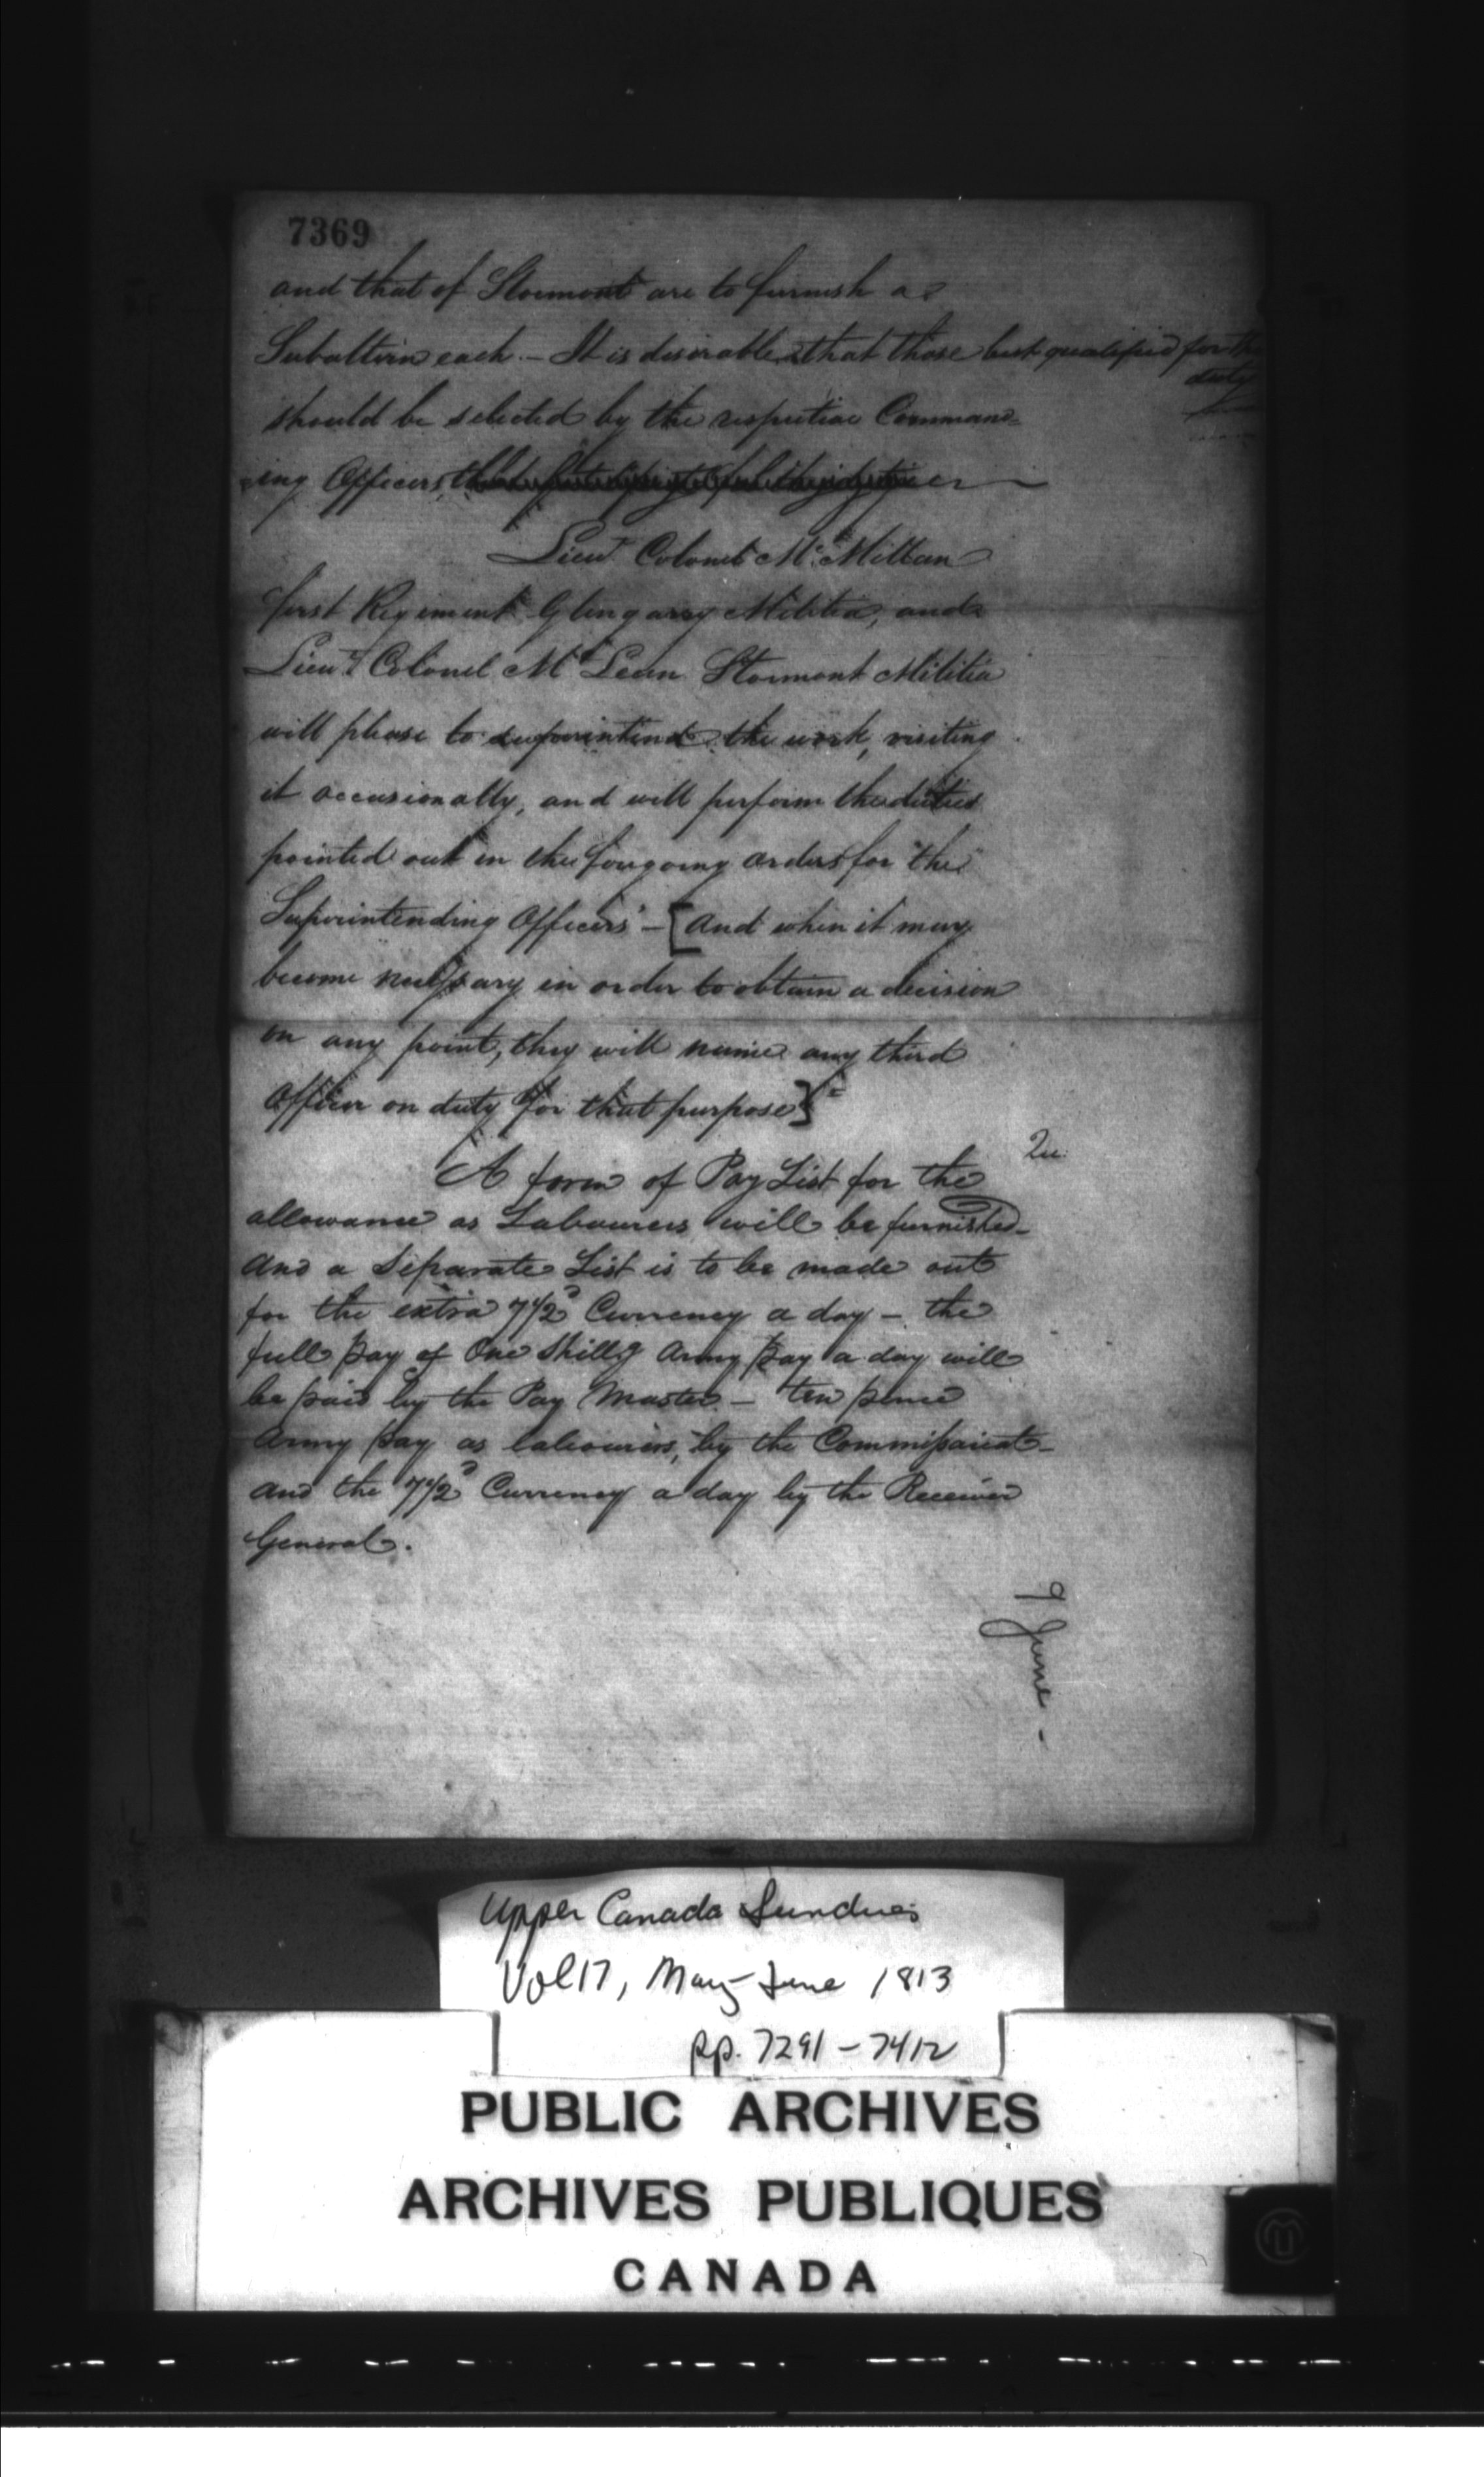 7369
and that of Stormont are to furnish a
Subaltern each. – It is desirable that those best qualified for the
duty
should be selected by the respective Command=
=ing Officers,
Lieut. Colonel Mc.Millan
first Regiment Glengarry Militia, and
Lieut. Colonel Mc Lean Stormont Militia
will please to superintend the work, visiting
it occasionally, and will perform the duties
pointed out in the foregoing orders for "the
Superintending Officers" – [And when it may
become necessary in order to obtain a decision
on any point, they will name any third
Officer on duty for that purpose]
Qu
A form of Pay List for the
allowance as Labourers will be furnished –
and a Separate List is to be made out
for the extra 7 1/2d Currency a day – the
full pay of One Shillg Army pay a day will
be paid by the Pay Master – ten pence
Army pay as labourers, by the Commissariat –
and the 7 1/2d Currency a day by the Receiver
General.
9 June –
Upper Canada Sundries
Vol 17, May-June 1813
pp. 7291 – 7412
PUBLIC ARCHIVES
ARCHIVES PUBLIQUES
CANADA